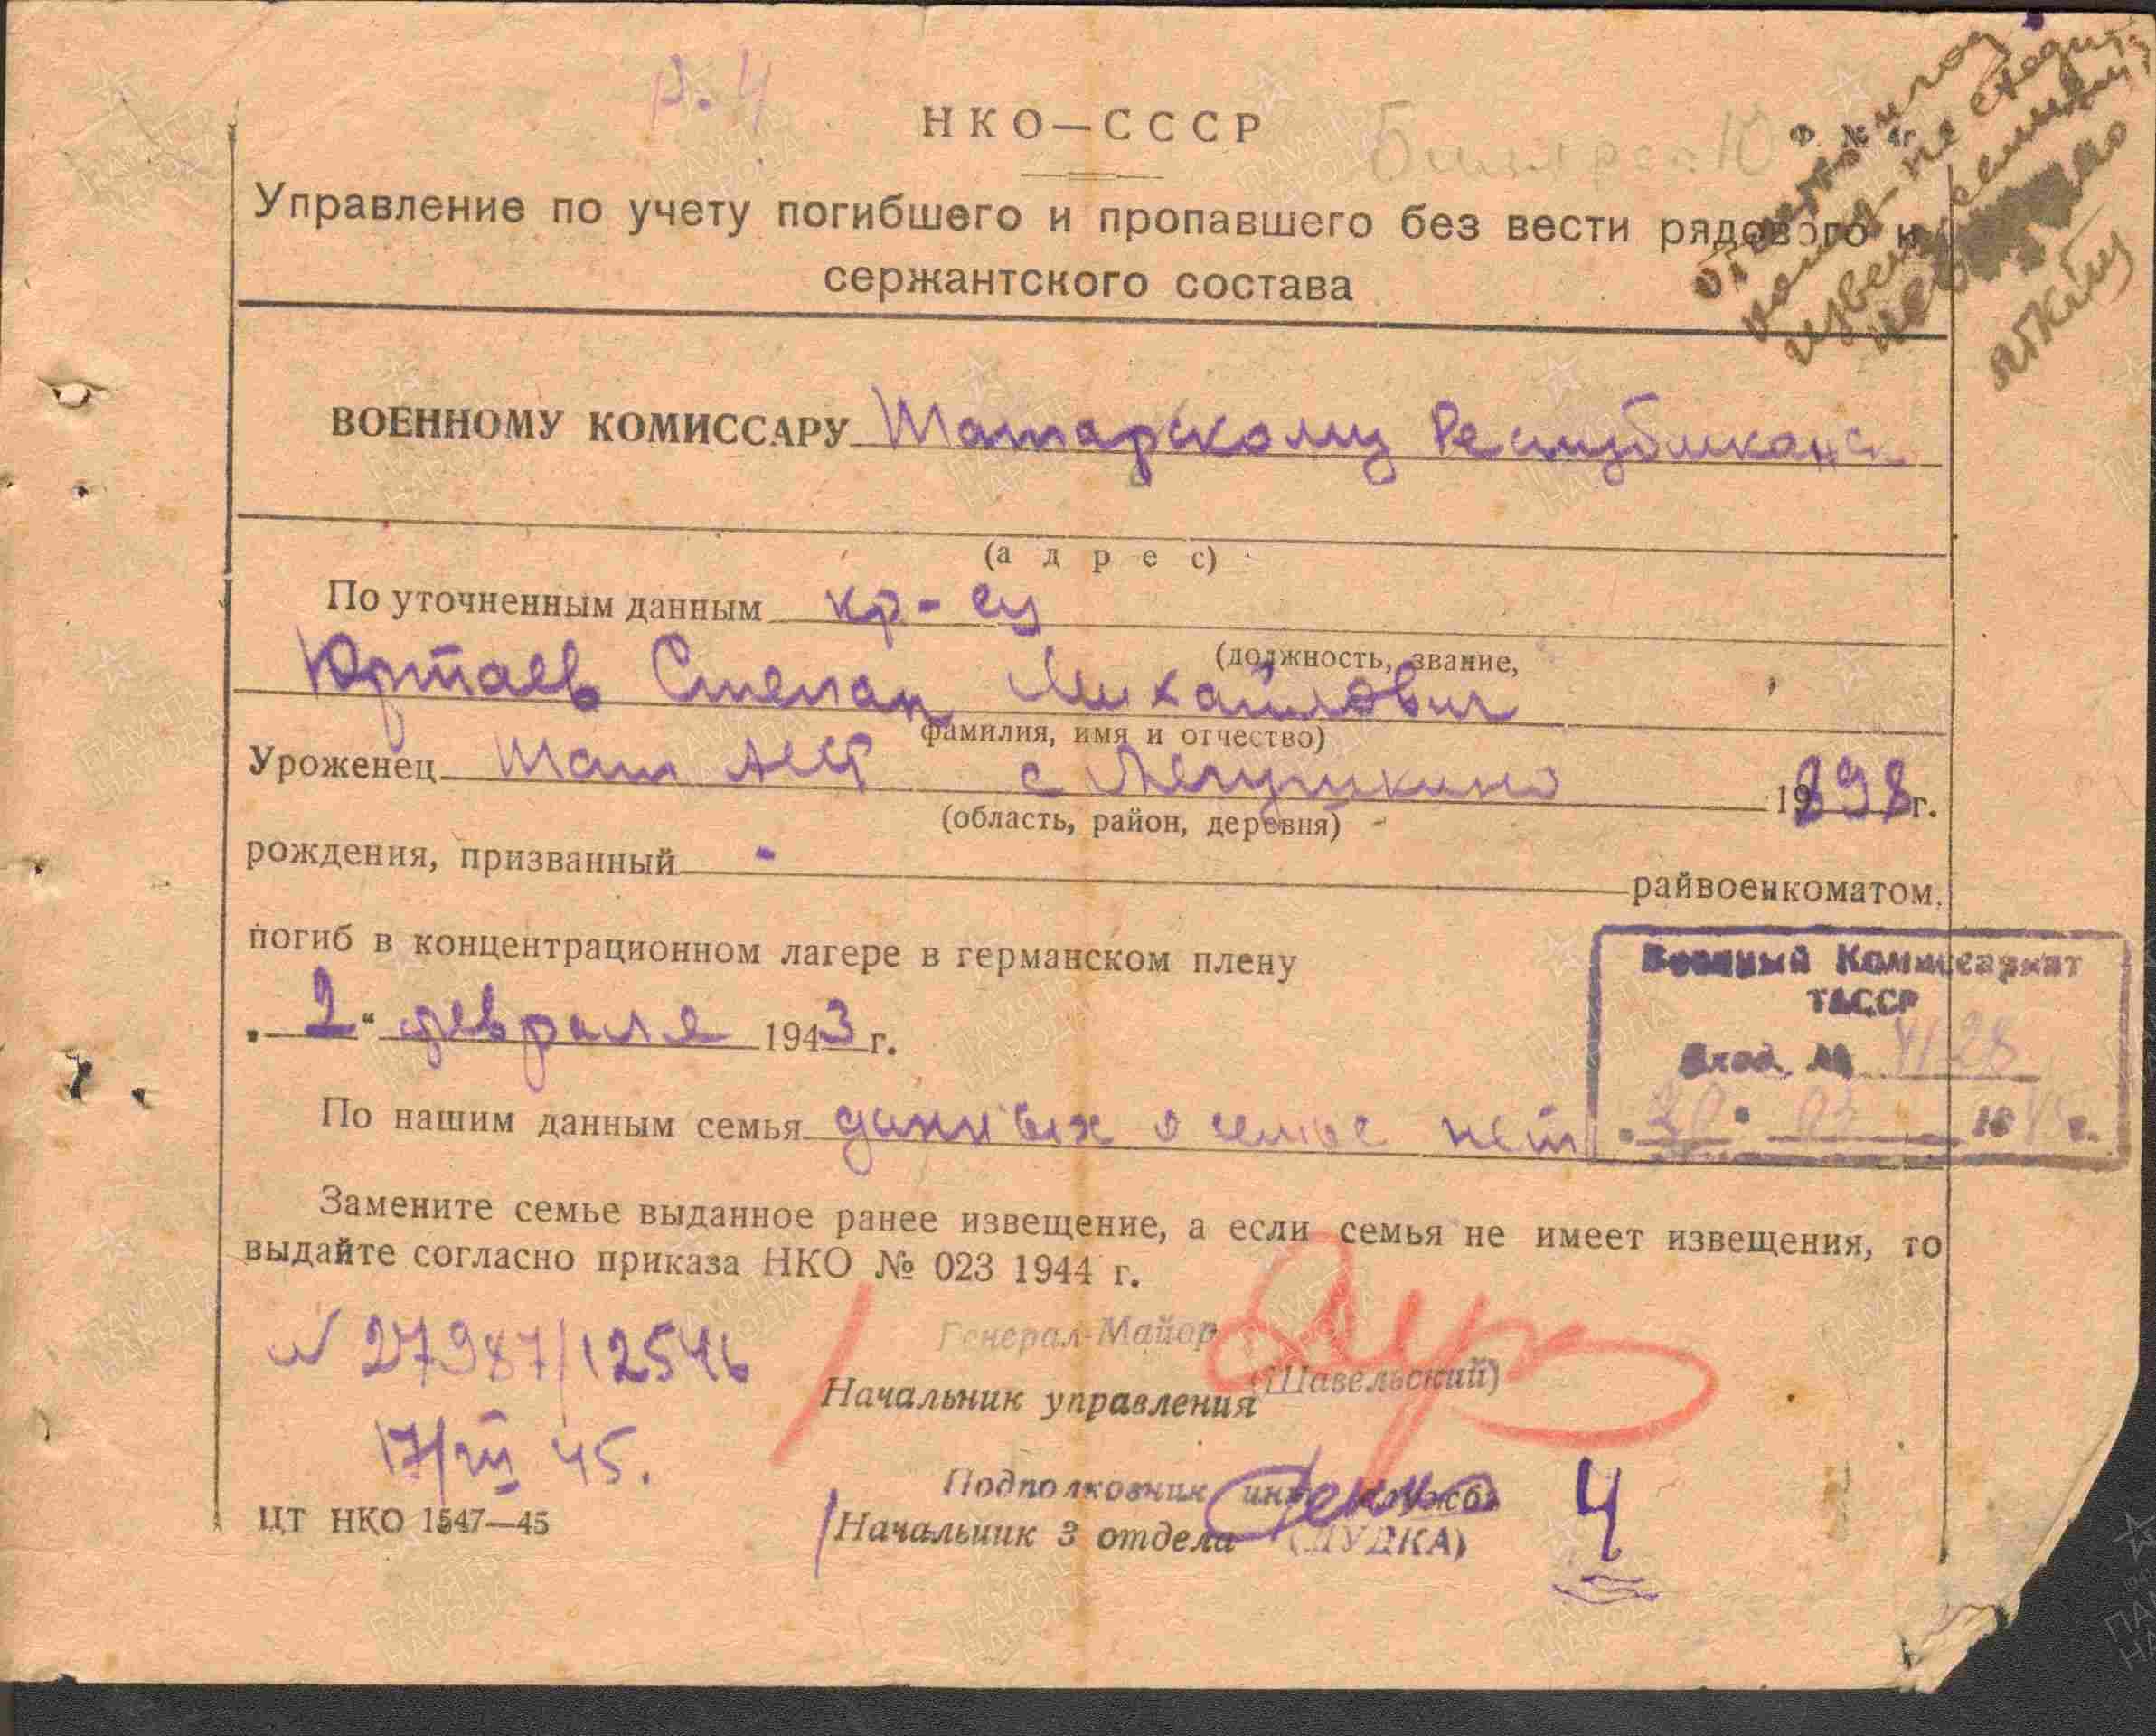 р. 4
НКО—СССР
Ф. № 4г
Управление по учету погибшего и пропавшего без вести рядового и
сержантского состава
ВОЕННОМУ КОМИССАРУ Татарскому Республиканск
(адрес)
По уточненным данным кр-ец
(должность, звание,
Юртаев Степан Михайлович
фамилия, имя и отчество)
Уроженец Тат АССР с 1898г.
(область, район, деревня)
рождения, призванный - райвоенкоматом,
погиб в концентрационном лагере в германском плену
"2" февраля 1943 г.
Военный Комиссариат
ТАССР
Вход. № 4128
"20" 03 1945г.
По нашим данным семья данных о семье нет
Замените семье выданное ранее извещение, а если семья не имеет извещения, то
выдайте согласно приказа НКО № 023 1944 г.
N 27987/12546
Генерал-Майор
Начальник управления (Шавельский)
17/III 45.
Подполковник инт. службы
Начальник 3 отдела (ДУДКА)
4
ЦТ НКО 1547—45